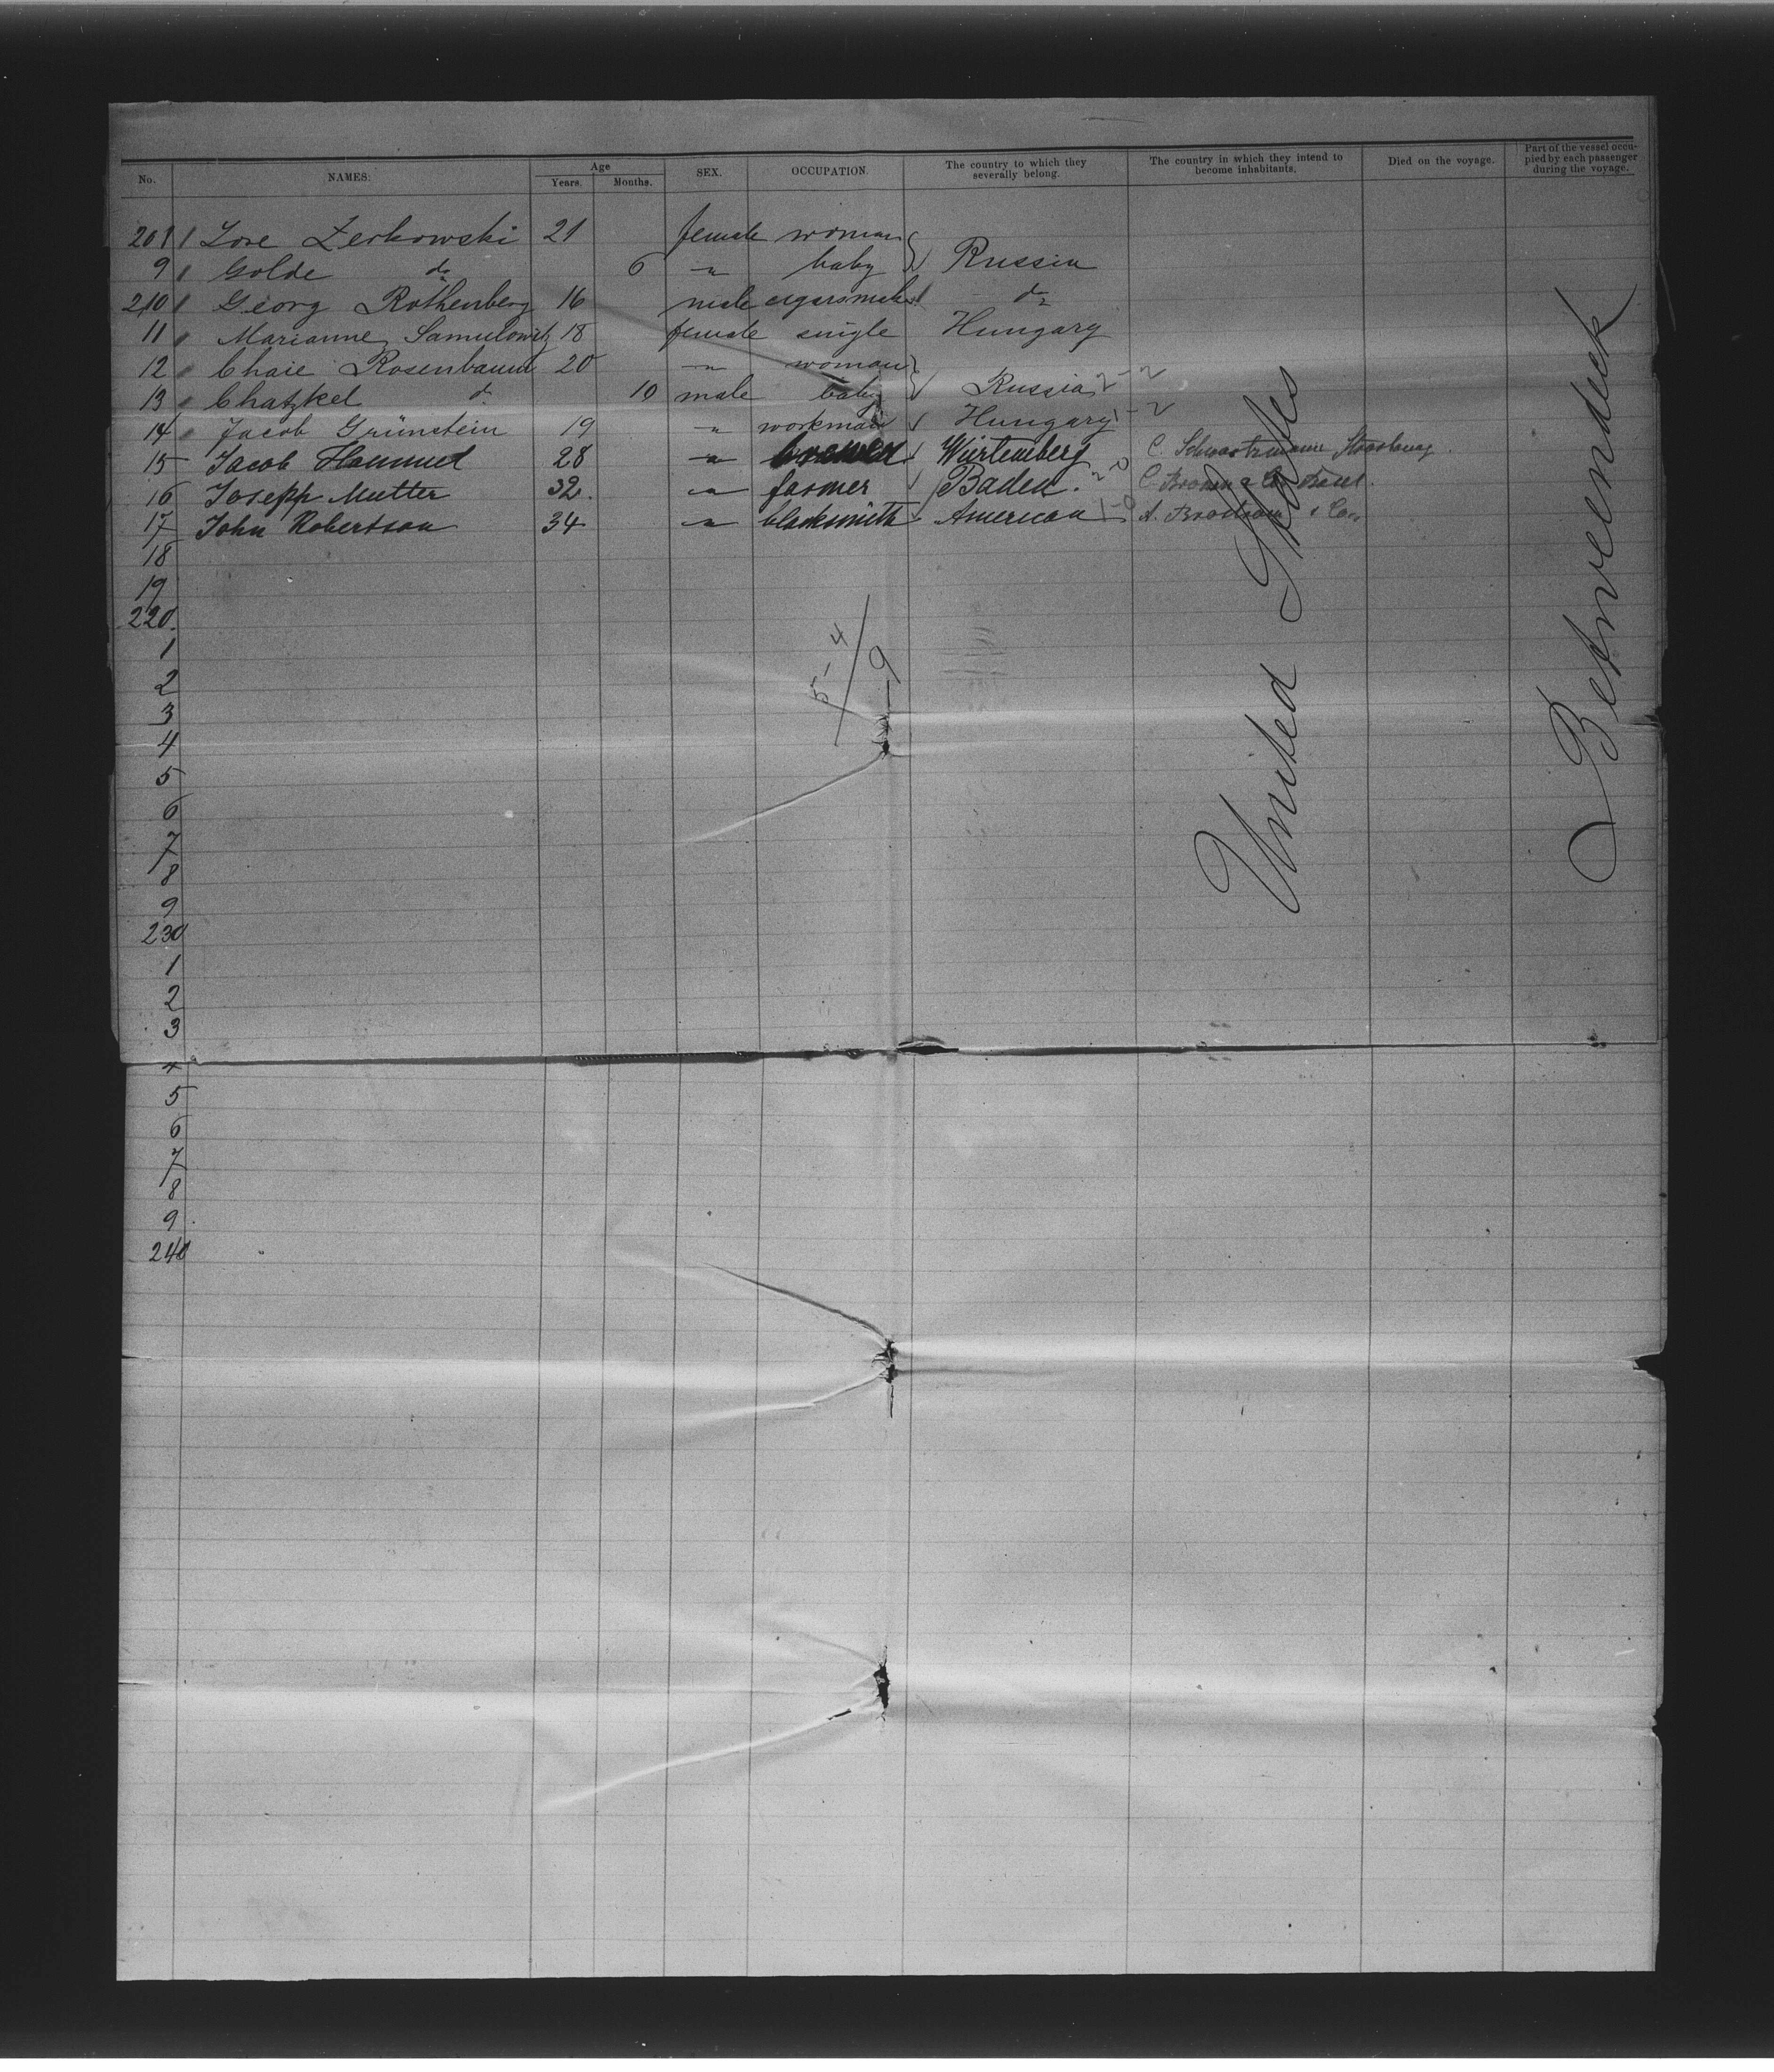 No. NAMES: Age Years. Months. SEX. OCCUPATION. The country to which they severally belong. The country in which they intend to become inhabitants. Died on the voyage. Part of the vessel occupied by each passenger during the voyage.
201 Zerkowski 21 female woman
9 Golde do 6 " baby Russia
210 Georg Rothenberg 16 male do
11 Marianne Samulowitz 18 female single Hungary
12 Chaie Rosenbaum 20 " woman
13 Chatzkel do 10 male baby Russia 2-2
14 Jacob Grünstein 19 " workman Hungary 1-2
15 Jacob 28 " Würtemberg C. Schwartzmann Strasbourg.
16 Joseph Mutter 32. " farmer Baden.
17 John Robertson 34 " blacksmith American 1-0 & Co.
18
19
220.
1
2
3
4
5
6
7
8
9
230
1
2
3
4
5
6
7
8
9
240
5-4
9
United States
Betweendeck